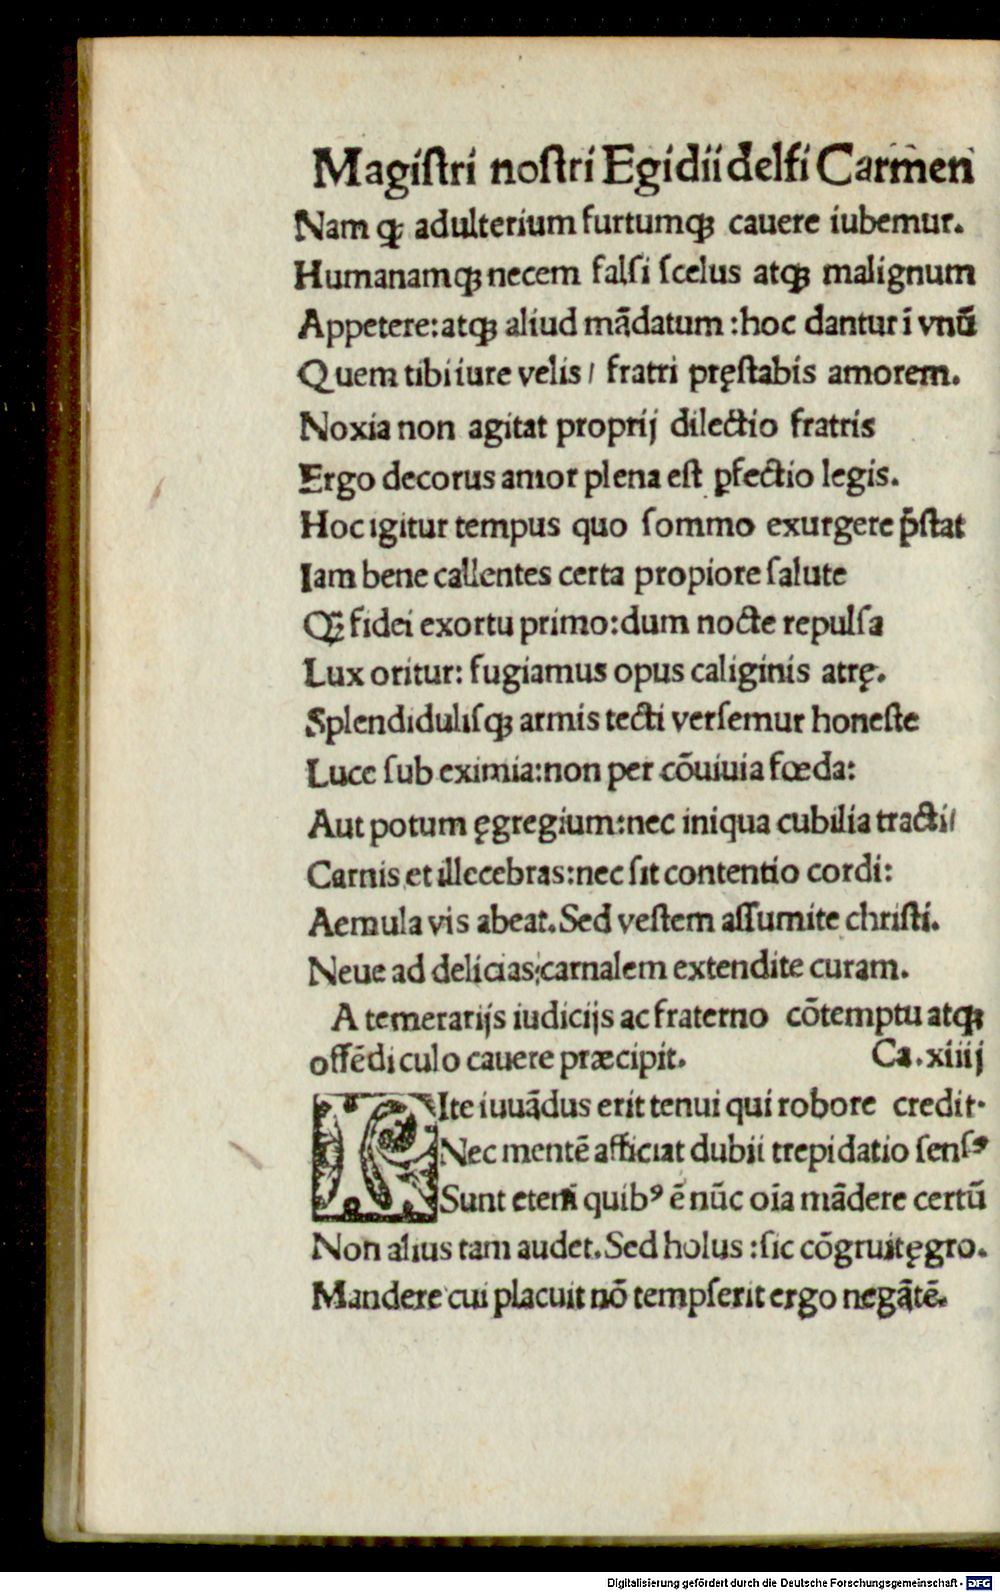 Magiſtri noſtri Egidii delfi Carmen
Nam qꝫ adulterium furtumqꝫ cauere iubemur.
Humanamqꝫ necem falſi ſcelus atqꝫ malignum
Appetere: atqꝫ aliud mãdatum :hoc dantur ĩ vnũ
Quem tibi iure velis/ fratri pręſtabis amorem.
Noxia non agitat proprij dilectio fratris
Ergo decorus amor plena eſt ꝑfectio legis.
Hoc igitur tempus quo ſommo exurgere p̃ſtat
Iam bene callentes certa propiore ſalute
Qꝫ fidei exortu primo: dum nocte repulſa
Lux oritur: fugiamus opus caliginis atrę.
Splendiduliſqꝫ armis tecti verſemur honeſte
Luce ſub eximia: non per cõuiuia fœda:
Aut potum ęgregium: nec iniqua cubilia tracti/
Carnis et illecebras: nec ſit contentio cordi:
Aemula vis abeat. Sed veſtem aſſumite chriſti.
Neue ad delicias: carnalem extendite curam.
A temerarijs iudicijs ac fraterno cõtemptu atqꝫ
offẽdiculo cauere præcipit. Ca. xiiij
RIte iuuãdus erit tenui qui robore credit.
Nec mentẽ afficiat dubii trepidatio ſenſꝰ
Sunt etenĩ quibꝰ ẽ nũc oĩa mãdere certũ
Non alius tam audet. Sed holus :ſic cõgruit ęgro.
Mandere cui placuit nõ tempſerit ergo negãtẽ.
Digitalisierung gefördert durch die Deutsche Forschungsgemeinschaft - DFG